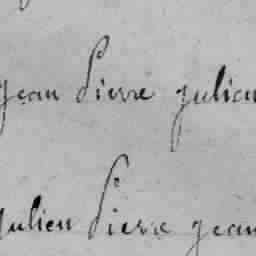 jean Pierre julien
julien Pierre jean